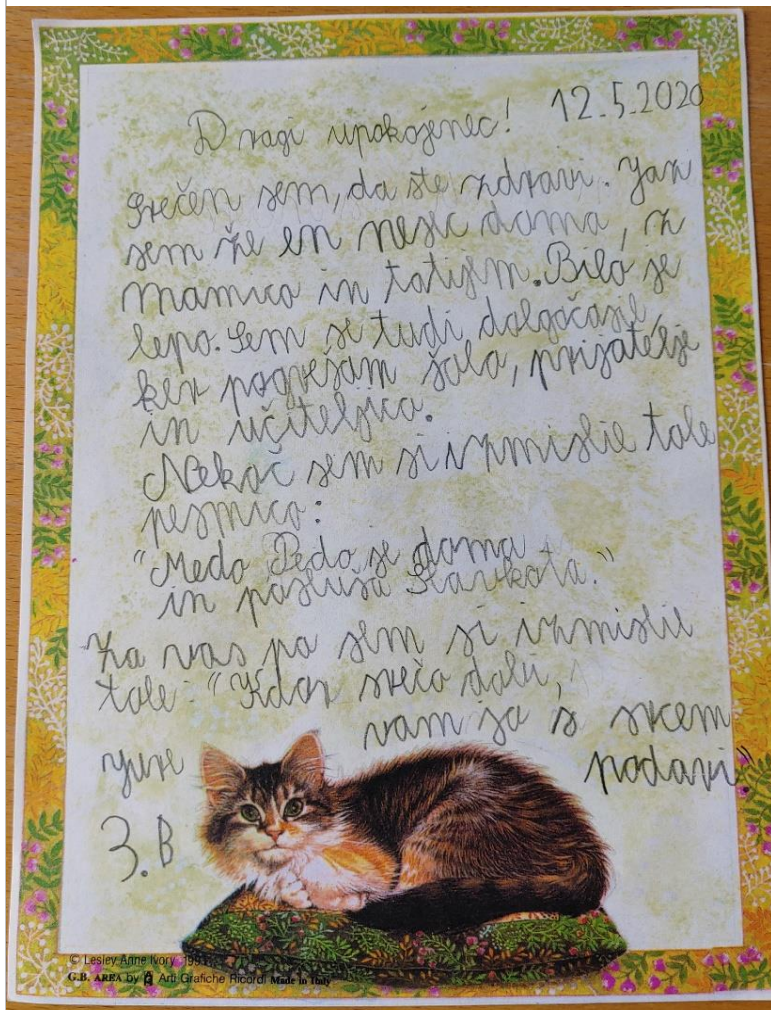 Dragi upokojenec! 12.5.2020
Srečen sem, da ste zdravi. Jaz
sem že en mesec doma, z
mamico in totijem. Bilo je
lepo. Sem se tudi dolgočasil,
ker pogrešam šolo, prijatelje
in učiteljico.
Nekoč sem si izmislil tole
pesmico:
"Medo Pedo je doma
in posluša Slavkota."
Za vas pa sem si izmislil
tole: "Kdor srečo dobi,
vam jo s srcem
Jure podari"
3.B
© Lesley Anne Ivory
G.B. AREA by Arti Grafiche Ricordi Made in Italy